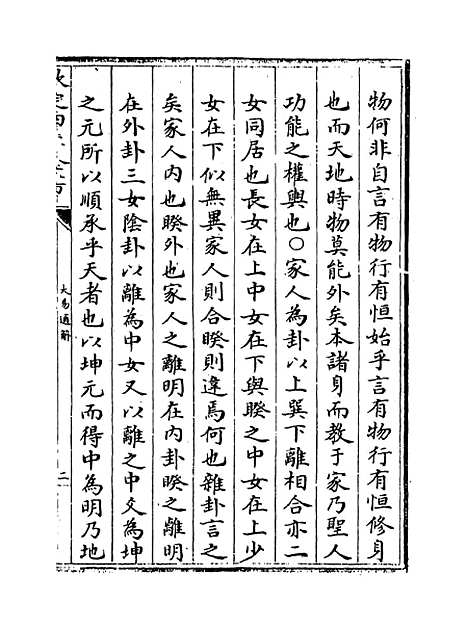 物何非自言有物行有恒始乎言有物行有恒修身
也而天地時物莫能外矣本諸身而教于家乃聖人
功能之權輿也○家人為卦以上巽下離相合亦二
女同居也長女在上中女在下與睽之中女在上少
女在下似無異家人則合睽則違焉何也雜卦言之
矣家人內也睽外也家人之離明在內卦睽之離明
在外卦三女陰卦以離為中女又以離之中交為坤
之元所以順承乎天者也以坤元而得中為明乃地
大易通解